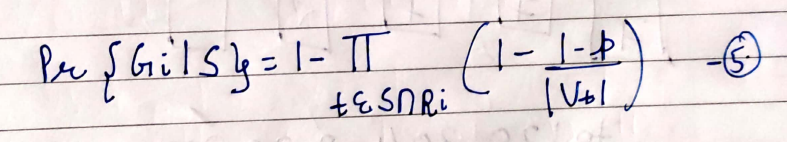 Pr {Gi|S} = 1 - ∏ t∈S∩Ri (1 - (1-p)/|Vt|) -⑤